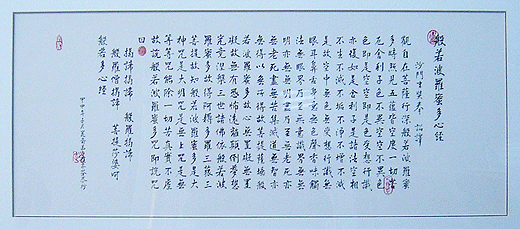 般若波羅蜜多心經
沙門玄奘奉 詔譯
觀自在菩薩行深般若波羅蜜
多時照見五蘊皆空度一切苦
厄舍利子色不異空空不異色
色即是空空即是色受想行識
亦復如是舍利子是諸法空相
不生不滅不垢不淨不增不減
是故空中無色無受想行識無
眼耳鼻舌身意無色聲香味觸
法無眼界乃至無意識界無無
明亦無無明盡乃至無老死亦
無老死盡無苦集滅道無智亦
無得以無所得故菩提薩埵依般
若波羅蜜多故心無罣礙無罣
礙故無有恐怖遠離顛倒夢想
究竟涅槃三世諸佛依般若波
羅蜜多故得阿耨多羅三藐三
菩提故知般若波羅蜜多是大
神咒是大明咒是無上咒是無
等等咒能除一切苦真實不虛
故說般若波羅蜜多咒即說咒
曰
揭諦揭諦 般羅揭諦
般羅僧揭諦 菩提莎婆訶
般若多心經